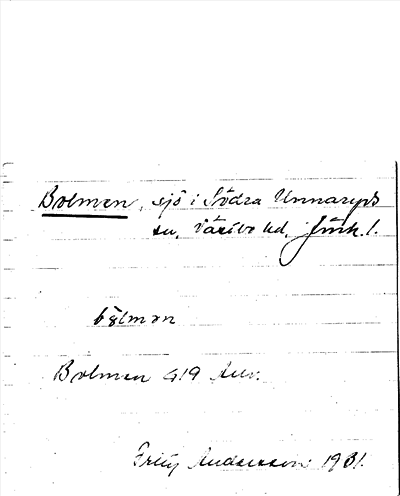 Bolmen, sjö i Södra Unnaryds
sn, Västbo hd, Jönk. l.
bo̯lmən
Bolmen G19 Anv.
Fritz Andersson 1931.